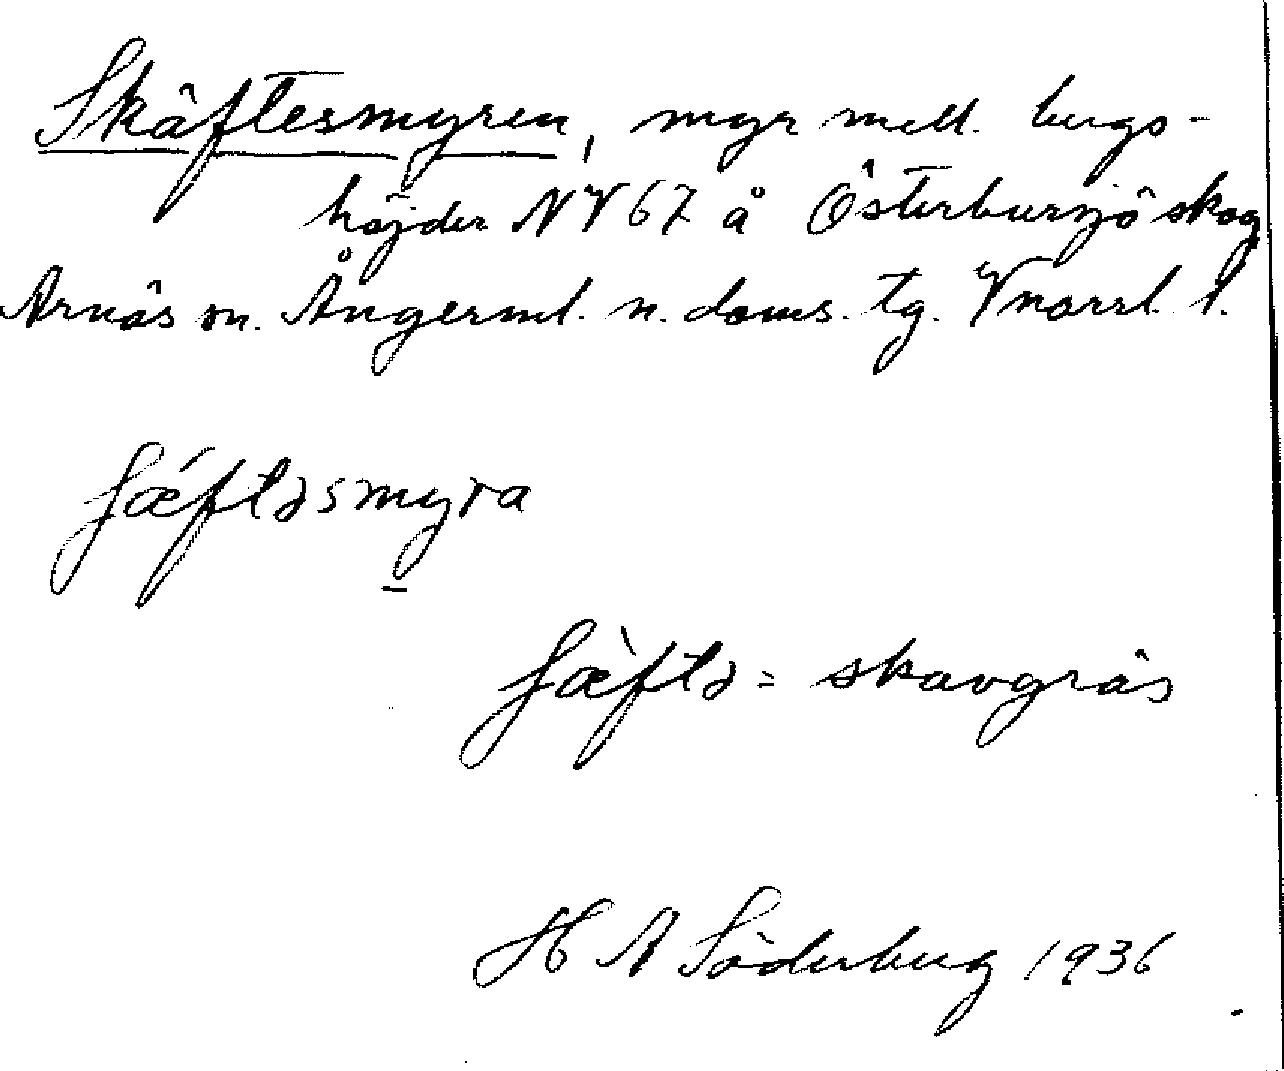 Skäftesmyren, myr mell. bergs-
höjder NV 67 å Österbursjö skog
Arnäs sn. Ångerml. n. doms. tg. Vnorrl. l.
ʃǽftəsmyra
ʃæ̀ftə = skavgräs
H A Söderberg 1936